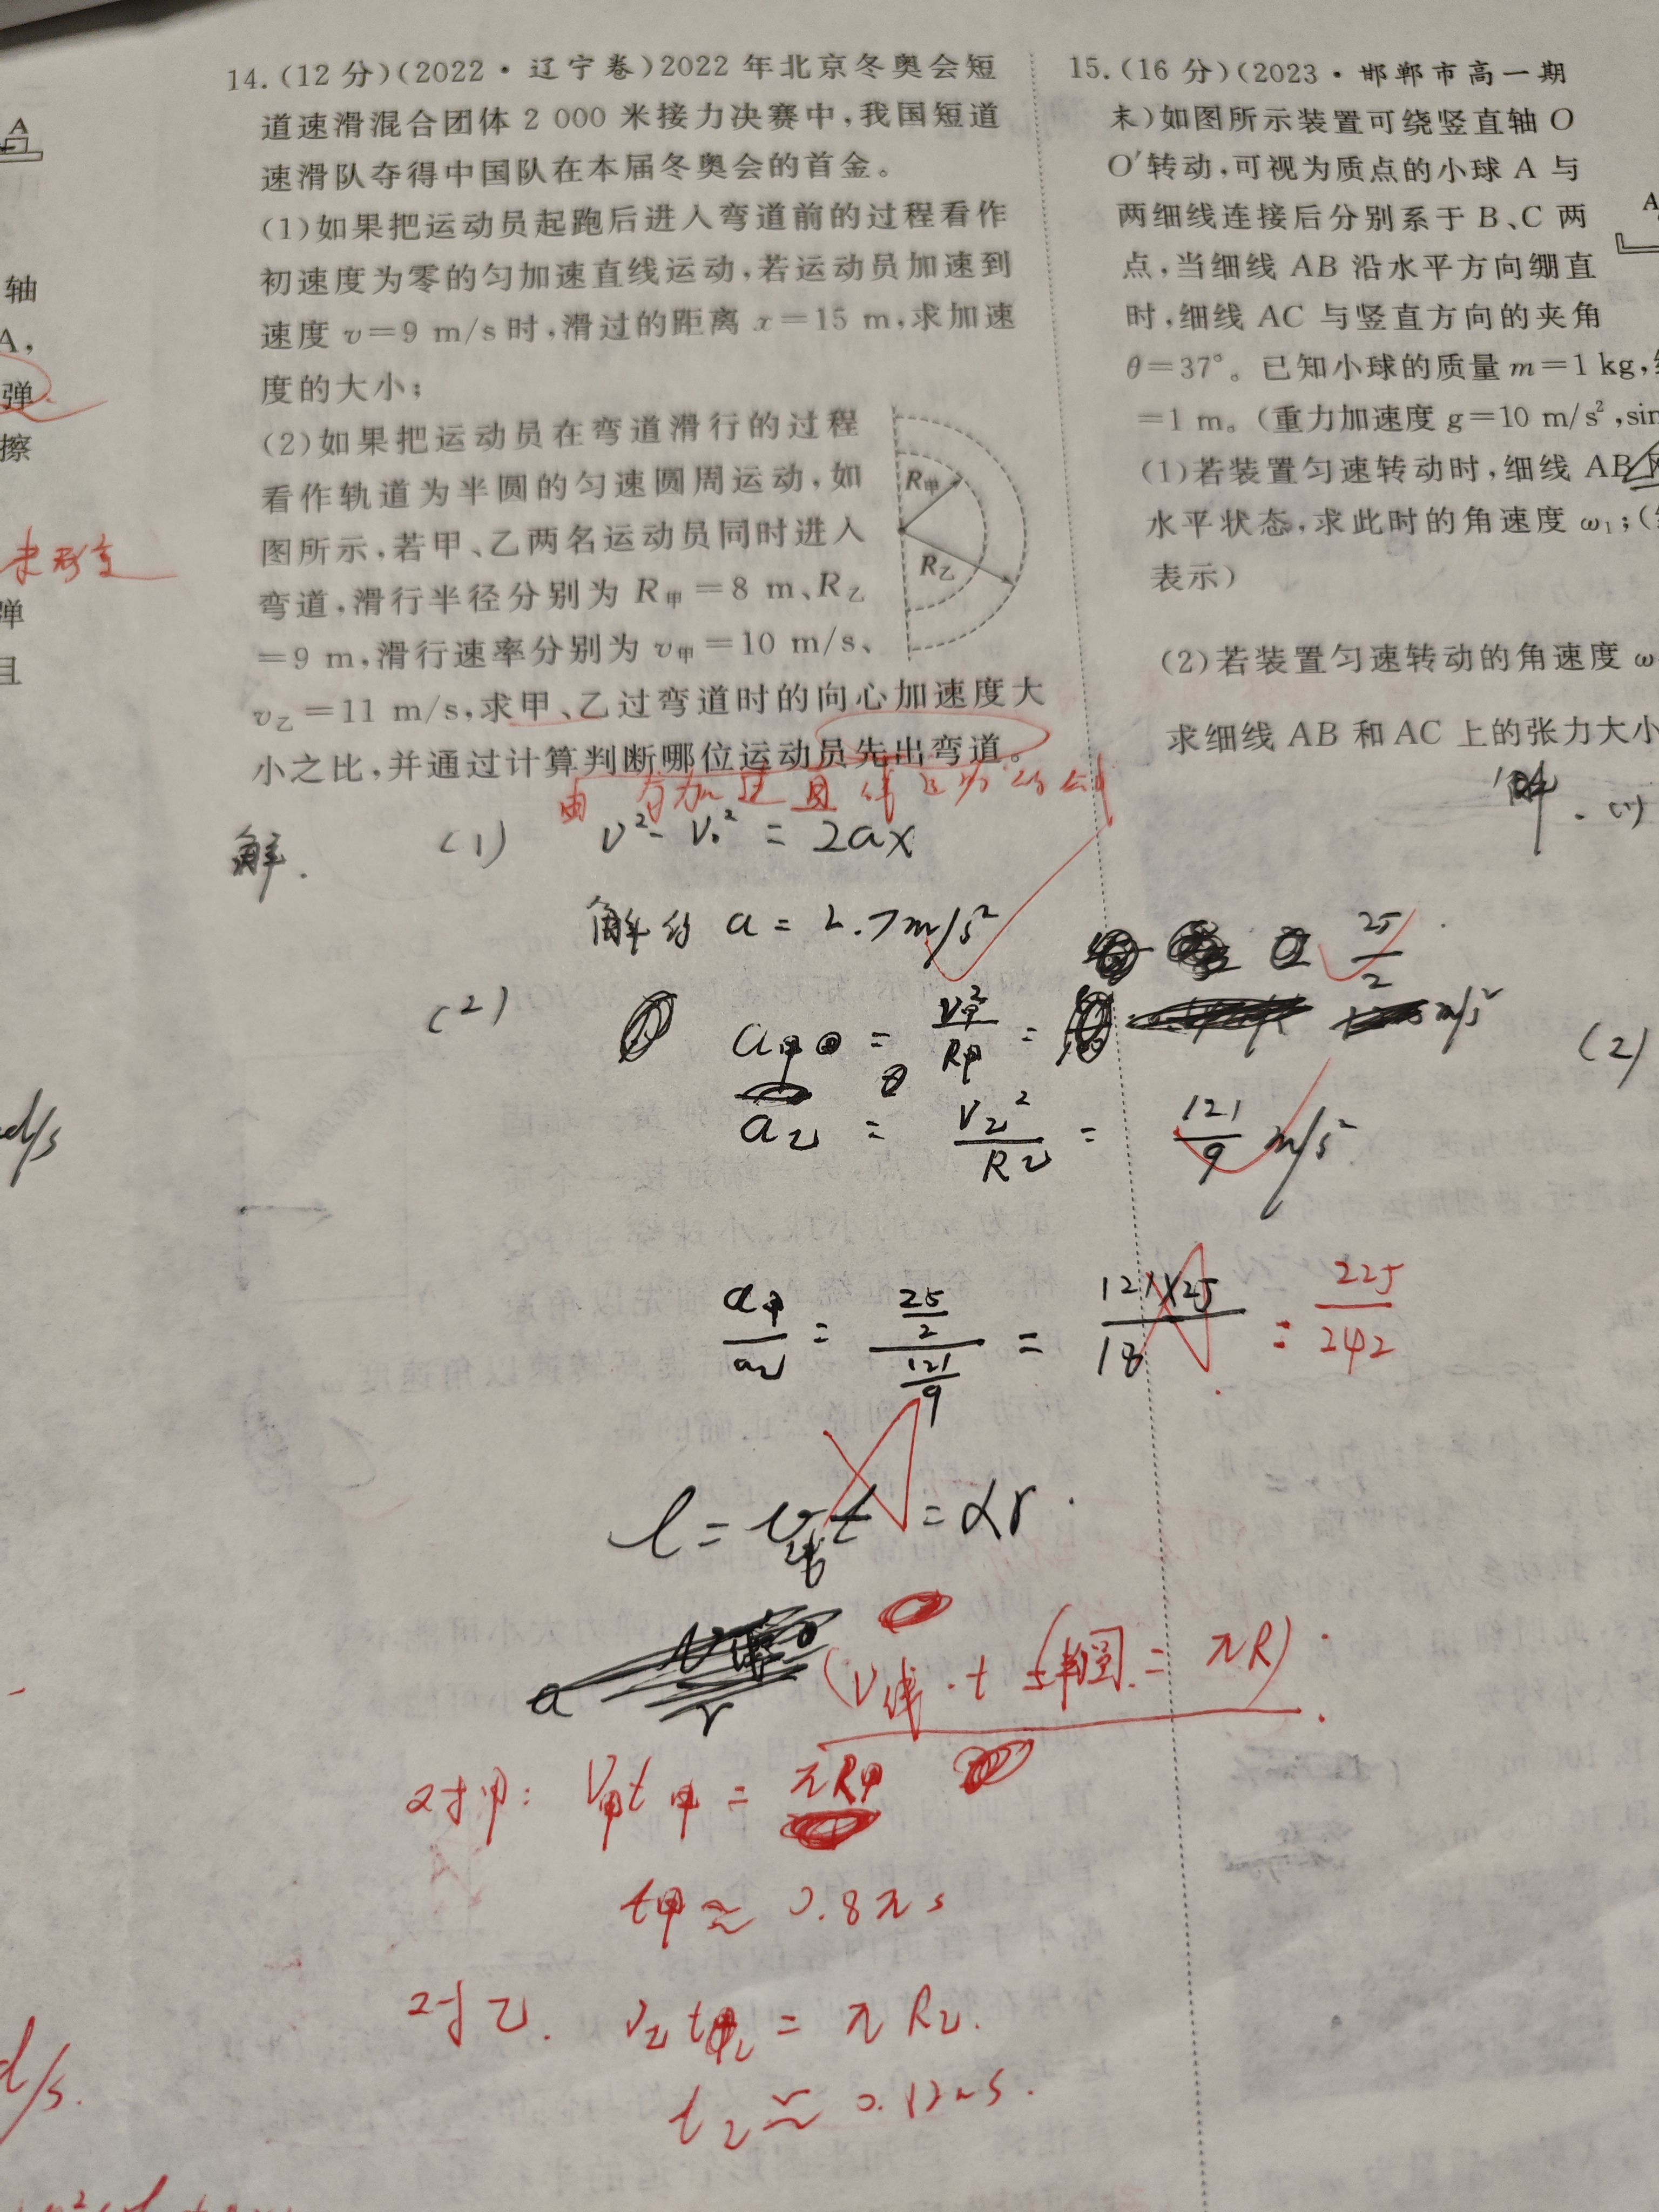 14.(12分)(2022·辽宁卷)2022年北京冬奥会短
道速滑混合团体2 000米接力决赛中,我国短道
速滑队夺得中国队在本届冬奥会的首金。
(1)如果把运动员起跑后进入弯道前的过程看作
初速度为零的匀加速直线运动,若运动员加速到
速度v=9 m/s时,滑过的距离x=15 m,求加速
度的大小;
(2)如果把运动员在弯道滑行的过程
看作轨道为半圆的匀速圆周运动,如
图所示,若甲、乙两名运动员同时进入
弯道,滑行半径分别为R甲=8 m、R乙
=9 m,滑行速率分别为v甲=10 m/s、
v乙=11 m/s,求甲、乙过弯道时的向心加速度大
小之比,并通过计算判断哪位运动员先出弯道。
R甲
R乙
由匀加速直线运动公式
解. (1) v²-v₀²=2ax
解得 a=2.7m/s²
(2) a甲=v甲²/R甲=25/2 m/s²
a乙=v乙²/R乙=121/9 m/s²
a甲/a乙=(25/2)/(121/9)=121×25/18=225/242
l=v线t=αr.
(v线·t=半圆=πR).
对甲: v甲t甲=πR甲
t甲≈0.8πs
对乙. v乙t乙=πR乙.
15.(16分)(2023·邯郸市高一期
末)如图所示装置可绕竖直轴O
O′转动,可视为质点的小球A与
两细线连接后分别系于B、C两
点,当细线AB沿水平方向绷直
时,细线AC与竖直方向的夹角
θ=37°。已知小球的质量m=1 kg,
=1 m。(重力加速度g=10 m/s²,sin
(1)若装置匀速转动时,细线AB
水平状态,求此时的角速度ω₁;(
表示)
(2)若装置匀速转动的角速度ω
求细线AB和AC上的张力大小
解.(1)
(2)
A
轴
A,
弹
擦
未形变
弹
且
A